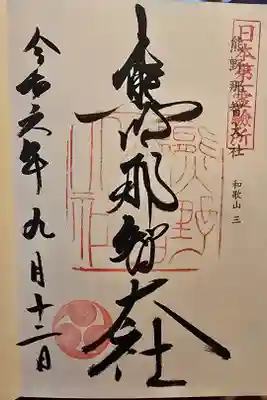 日本第一霊験所
熊野那智大社
和歌山 三
熊野那智大社
令和六年九月十二日